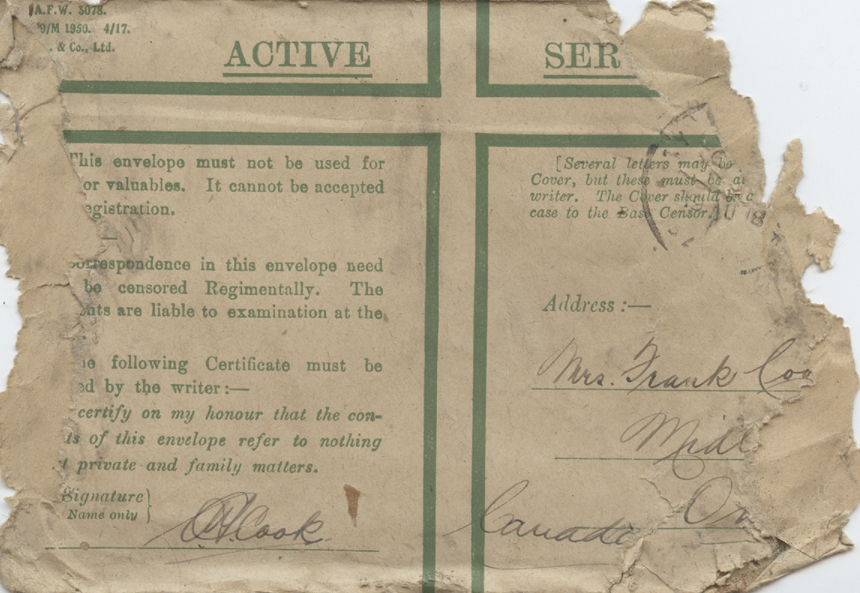 A.F.W. 3078.
/M 1950. 4/17.
. & Co., Ltd.
ACTIVE SER
This envelope must not be used for
or valuables. It cannot be accepted
egistration.
orrespondence in this envelope need
be censored Regimentally. The
nts are liable to examination at the
e following Certificate must be
ed by the writer:—
certify on my honour that the con-
ts of this envelope refer to nothing
t private and family matters.
Signature }
Name only
Cook
[Several letters may be
Cover, but these must be a
writer. The Cover should be a
case to the Base Censor.]
Address :—
Mrs. Frank Coo
Midl
On
Canada